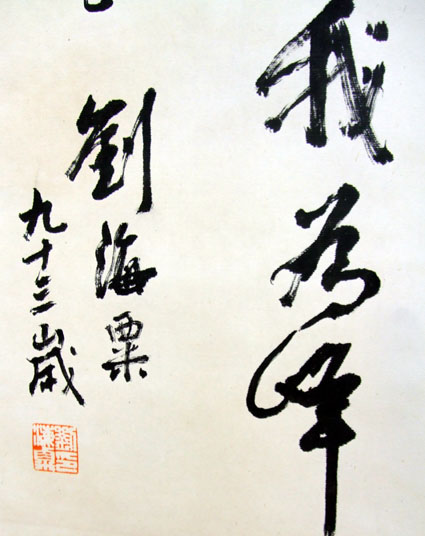 我為峰
劉海粟
九十三歲